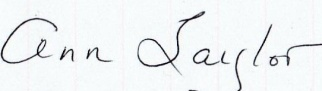 Ann Taylor